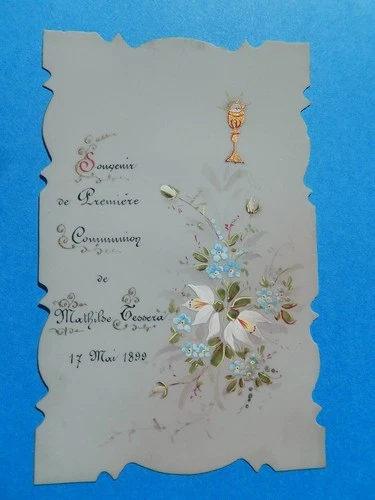 Souvenir
de Première
Communion
de
Mathilde Tessera
17 Mai 1899